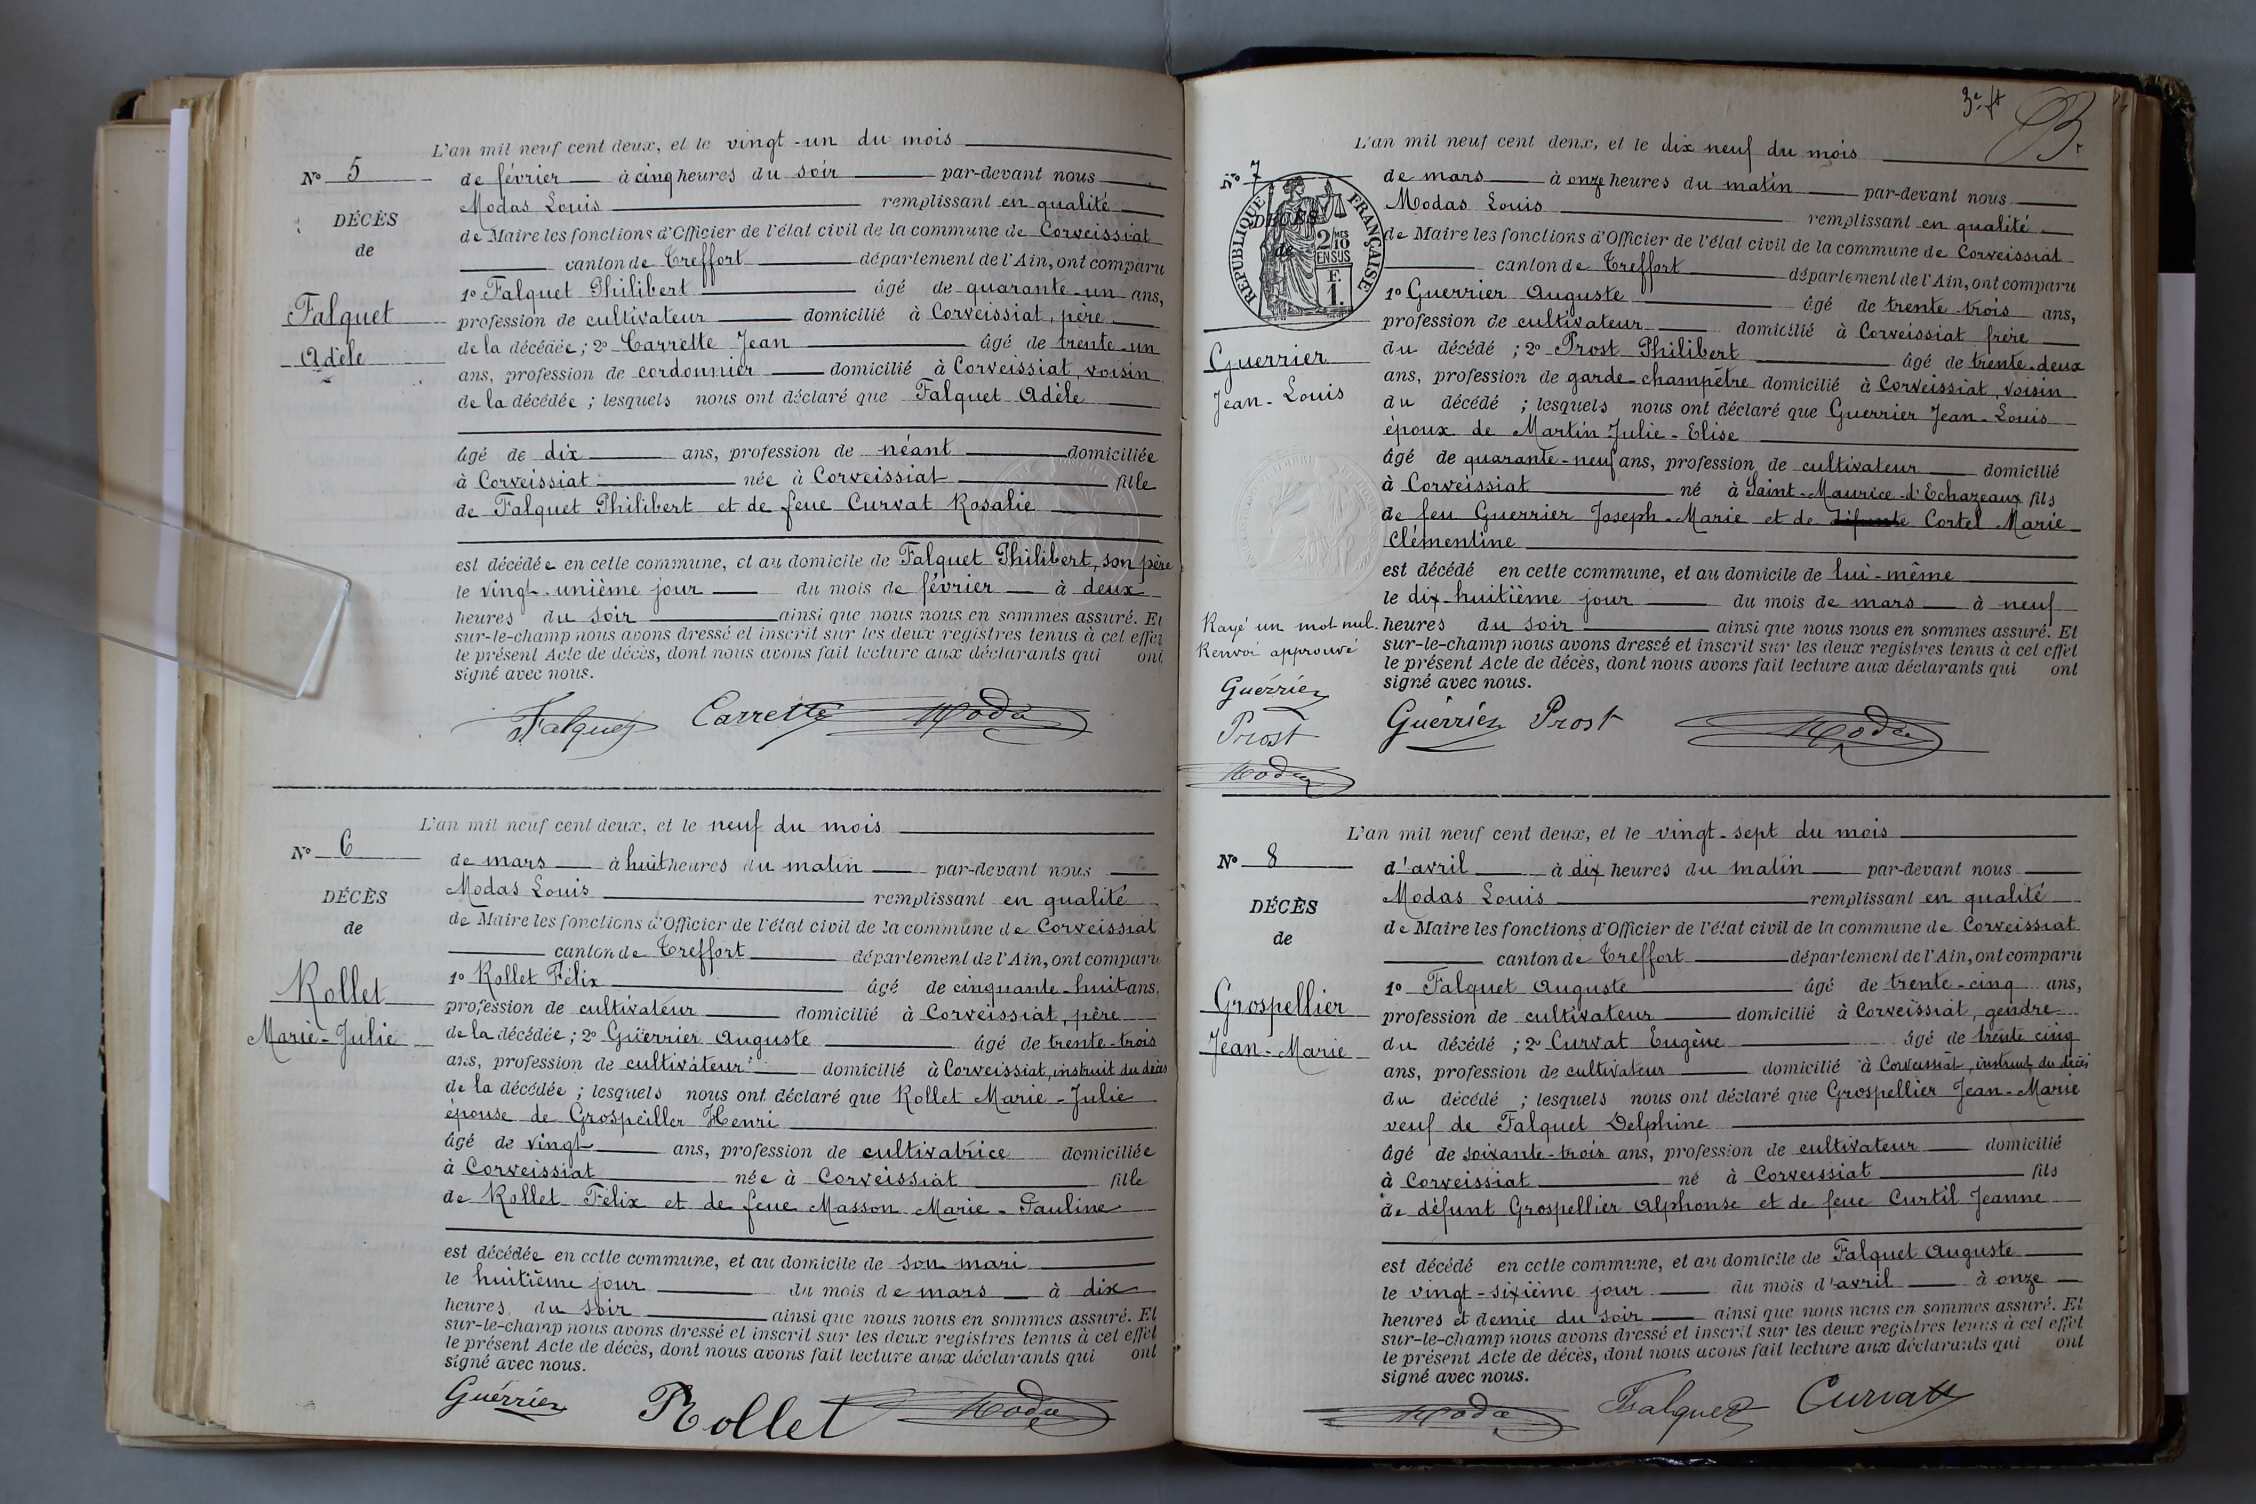 L'an mil neuf cent deux, et le vingt-un du mois
No 5
de février à cinq heures du soir par-devant nous
DÉCÈS
de
Falquet
Adèle
Modas Louis remplissant en qualité
de Maire les fonctions d'Officier de l'état civil de la commune de Corveissiat
canton de Treffort département de l'Ain, ont comparu
1o Falquet Philibert âgé de quarante-un ans,
profession de cultivateur domicilié à Corveissiat, père
de la décédée ; 2o Carrette Jean âgé de trente-un
ans, profession de cordonnier domicilié à Corveissiat, voisin
de la décédée ; lesquels nous ont déclaré que Falquet Adèle
âgé de dix ans, profession de néant domiciliée
à Corveissiat née à Corveissiat fille
de Falquet Philibert et de feue Curvat Rosalie
est décédée en cette commune, et au domicile de Falquet Philibert, son père
le vingt-unième jour du mois de février à deux
heures du soir ainsi que nous nous en sommes assuré. Et
sur-le-champ nous avons dressé et inscrit sur les deux registres tenus à cet effet
le présent Acte de décès, dont nous avons fait lecture aux déclarants qui ont
signé avec nous.
Falquet Carrette Modas
L'an mil neuf cent deux, et le neuf du mois
No 6
de mars à huit heures du matin par-devant nous
DÉCÈS
de
Rollet
Marie-Julie
Modas Louis remplissant en qualité
de Maire les fonctions d'Officier de l'état civil de la commune de Corveissiat
canton de Treffort département de l'Ain, ont comparu
1o Rollet Félix âgé de cinquante-huit ans,
profession de cultivateur domicilié à Corveissiat, père
de la décédée ; 2o Guerrier Auguste âgé de trente-trois
ans, profession de cultivateur domicilié à Corveissiat, instruit du décès
de la décédée ; lesquels nous ont déclaré que Rollet Marie-Julie
épouse de Grospeiller Henri
âgé de vingt ans, profession de cultivatrice domiciliée
à Corveissiat née à Corveissiat fille
de Rollet Félix et de feue Masson Marie-Pauline
est décédée en cette commune, et au domicile de son mari
le huitième jour du mois de mars à dix
heures du soir ainsi que nous nous en sommes assuré. Et
sur-le-champ nous avons dressé et inscrit sur les deux registres tenus à cet effet
le présent Acte de décès, dont nous avons fait lecture aux déclarants qui ont
signé avec nous.
Guérrier Rollet Modas
L'an mil neuf cent deux, et le dix neuf du mois
No 7
de mars à onze heures du matin par-devant nous
DÉCÈS
de
RÉPUBLIQUE FRANÇAISE
2/10
EN SUS
F.
1.
Guerrier
Jean-Louis
Modas Louis remplissant en qualité
de Maire les fonctions d'Officier de l'état civil de la commune de Corveissiat
canton de Treffort département de l'Ain, ont comparu
1o Guerrier Auguste âgé de trente-trois ans,
profession de cultivateur domicilié à Corveissiat frère
du décédé ; 2o Prost Philibert âgé de trente-deux
ans, profession de garde-champêtre domicilié à Corveissiat, voisin
du décédé ; lesquels nous ont déclaré que Guerrier Jean-Louis
époux de Martin Julie-Elise
âgé de quarante-neuf ans, profession de cultivateur domicilié
à Corveissiat né à Saint-Maurice-d'Echazeaux fils
de feu Guerrier Joseph-Marie et de défunte Cortel Marie
Clémentine
est décédé en cette commune, et au domicile de lui-même
le dix-huitième jour du mois de mars à neuf
heures du soir ainsi que nous nous en sommes assuré. Et
sur-le-champ nous avons dressé et inscrit sur les deux registres tenus à cet effet
le présent Acte de décès, dont nous avons fait lecture aux déclarants qui ont
signé avec nous.
Rayé un mot nul.
Renvoi approuvé
Guérrier
Prost
Modas
Guérrier Prost Modas
L'an mil neuf cent deux, et le vingt-sept du mois
No 8
d'avril à dix heures du matin par-devant nous
DÉCÈS
de
Grospellier
Jean-Marie
Modas Louis remplissant en qualité
de Maire les fonctions d'Officier de l'état civil de la commune de Corveissiat
canton de Treffort département de l'Ain, ont comparu
1o Falquet Auguste âgé de trente-cinq ans,
profession de cultivateur domicilié à Corveissiat, gendre
du décédé ; 2o Curvat Eugène âgé de trente cinq
ans, profession de cultivateur domicilié à Corveissiat, instruit du décès
du décédé ; lesquels nous ont déclaré que Grospellier Jean-Marie
veuf de Falquet Delphine
âgé de soixante-trois ans, profession de cultivateur domicilié
à Corveissiat né à Corveissiat fils
de défunt Grospellier Alphonse et de feue Curtil Jeanne
est décédé en cette commune, et au domicile de Falquet Auguste
le vingt-sixième jour du mois d'avril à onze
heures et demie du soir ainsi que nous nous en sommes assuré. Et
sur-le-champ nous avons dressé et inscrit sur les deux registres tenus à cet effet
le présent Acte de décès, dont nous avons fait lecture aux déclarants qui ont
signé avec nous.
Modas Falquet Curvat